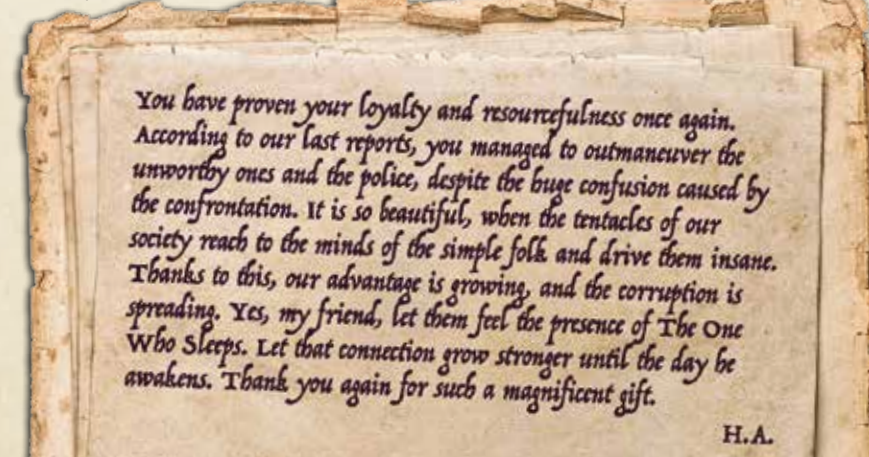 You have proven your loyalty and resourcefulness once again.
According to our last reports, you managed to outmaneuver the
unworthy ones and the police, despite the huge confusion caused by
the confrontation. It is so beautiful, when the tentacles of our
society reach to the minds of the simple folk and drive them insane.
Thanks to this, our advantage is growing, and the corruption is
spreading. Yes, my friend, let them feel the presence of The One
Who Sleeps. Let that connection grow stronger until the day he
awakens. Thank you again for such a magnificent gift.
H.A.